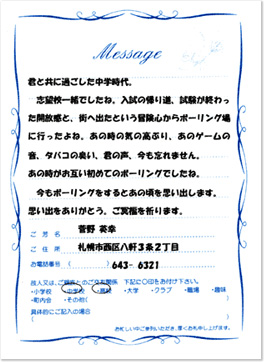 Message
君と共に過ごした中学時代。
志望校一緒でしたね。入試の帰り道、試験が終わっ
た開放感と、街へ出たという冒険心からボーリング場
に行ったよね。あの時の気の高ぶり、あのゲームの
音、タバコの臭い、君の声、今も忘れません。
あの時がお互い初めてのボーリングでしたね。
今もボーリングをするとあの頃を思い出します。
思い出をありがとう。ご冥福を祈ります。
ご芳名 菅野 英幸
ご住所 札幌市西区八軒3条2丁目
お電話番号 ( ) 643-6321
故人又は、ご親族とのご交友関係 下記に○印をお付け下さい。
・小学校 ・中学校 ・高校 ・大学 ・クラブ ・職場 ・趣味
・町内会 ・その他( )
具体的にご記入の場合
( )
お忙しい中ご参列いただき、厚くお礼申し上げます。